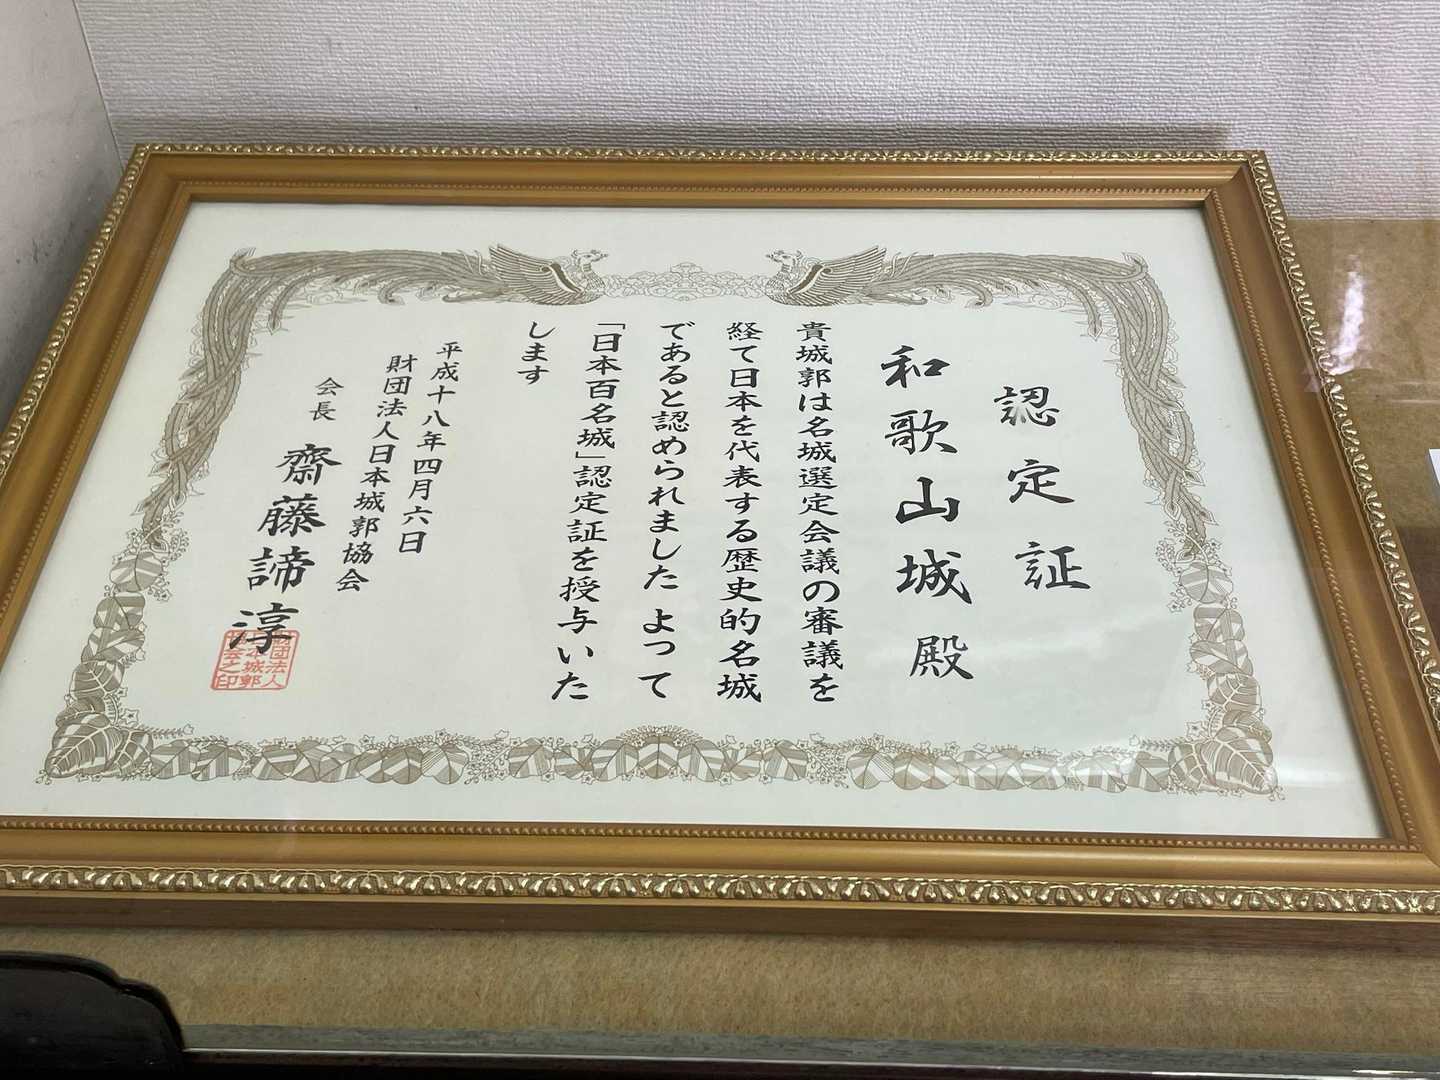 認定証
和歌山城殿
貴城郭は名城選定会議の審議を
経て日本を代表する歴史的名城
であると認められました よって
「日本百名城」認定証を授与いた
します
平成十八年四月六日
財団法人日本城郭協会
会長 齋藤諦淳
財団法人
日本城郭
協会之印